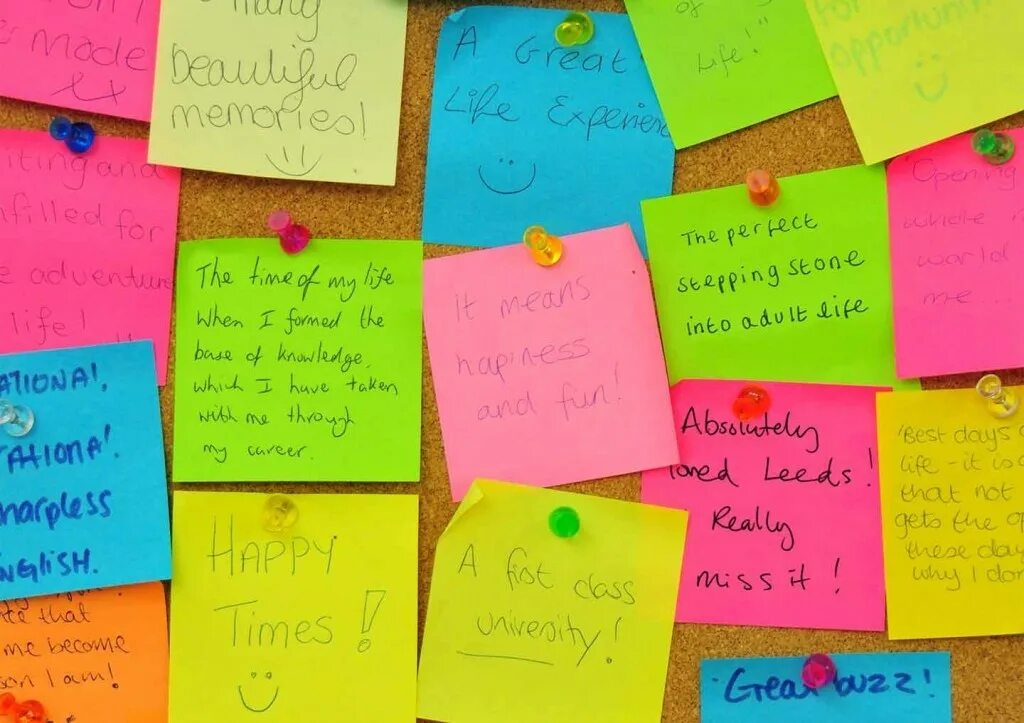 made
many
beautiful
memories!
A Great
Life Experien
of
Life!"
for
opportun
iting and
filled for
adventure
life!
The time of my life
when I formed the
base of knowledge,
which I have taken
with me through
my career.
It means
hapiness
and fun!
The perfect
stepping stone
into adult life
"Opening
world
me...
ATIONA!,
RATIONA!.
harpless
NGLISH.
Absolutely
loved Leeds!
Really
miss it!
'Best days
life - it is
that not
gets the op
these day
why I don
that
me become
son I am!
Happy
Times!
A first class
university!
'Great buzz!